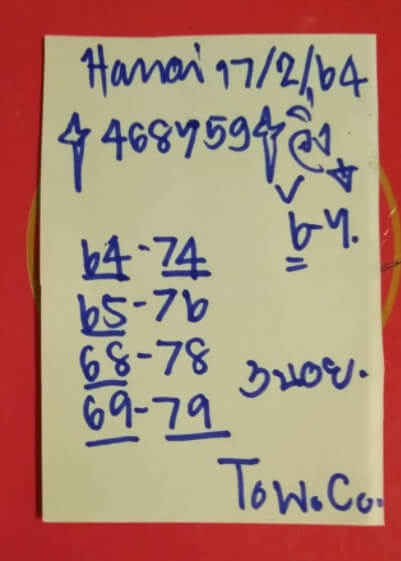 Hanoi 17/2/64
468759 วิ่ง
6-7.
64-74
65-76
68-78
69-79
ฮานอย.
To W. Co.